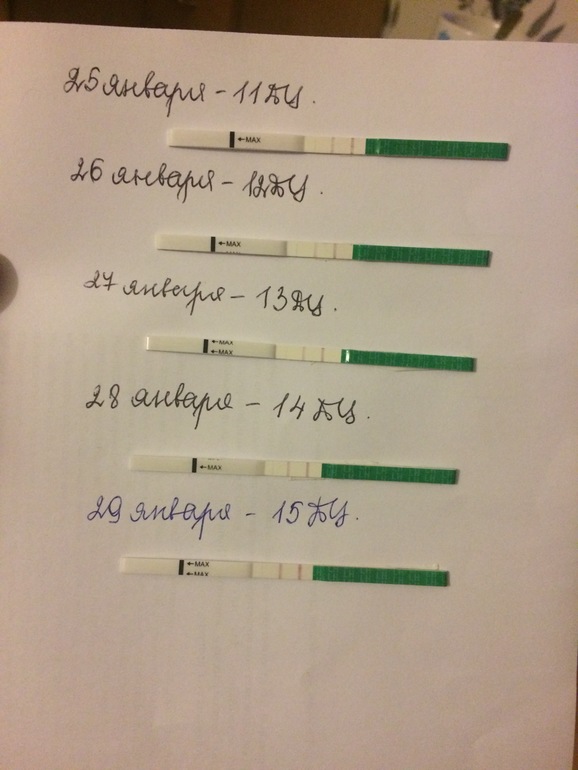 25 января - 11 ДЦ.
←MAX
26 января - 12 ДЦ.
←MAX
27 января - 13 ДЦ.
←MAX
←MAX
28 января - 14 ДЦ.
←MAX
29 января - 15 ДЦ.
←MAX
←MAX